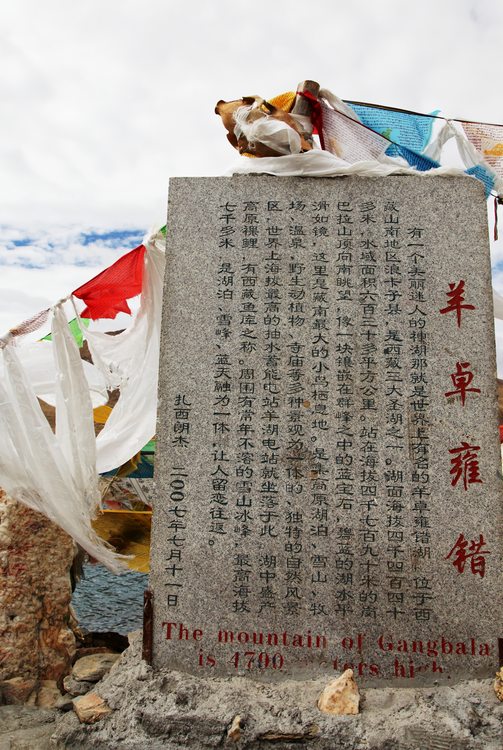 羊卓雍错
有一个美丽迷人的神湖那就是世界上有名的羊卓雍错湖。位于西
藏山南地区浪卡子县，是西藏三大圣湖之一。湖面海拔四千四百四十
多米，水域面积六百三十多平方公里。站在海拔四千七百九十米的岗
巴拉山顶向南眺望，像一块镶嵌在群峰之中的蓝宝石，碧蓝的湖水平
滑如镜，这里是藏南最大的小鸟栖息地。是集高原湖泊、雪山、牧
场、温泉、野生动植物、寺庙等多种景观为一体的、独特的自然风景
区，世界上海拔最高的抽水蓄能电站羊湖电站就坐落于此 湖中盛产
高原裸鲤，有西藏鱼库之称。周围有常年不溶的雪山冰峰，最高海拔
七千多米 是湖泊、雪峰、蓝天融为一体，让人留恋往返。
扎西朗杰 二00七年七月十一日
The mountain of Gangbala
is 4790 meters high.